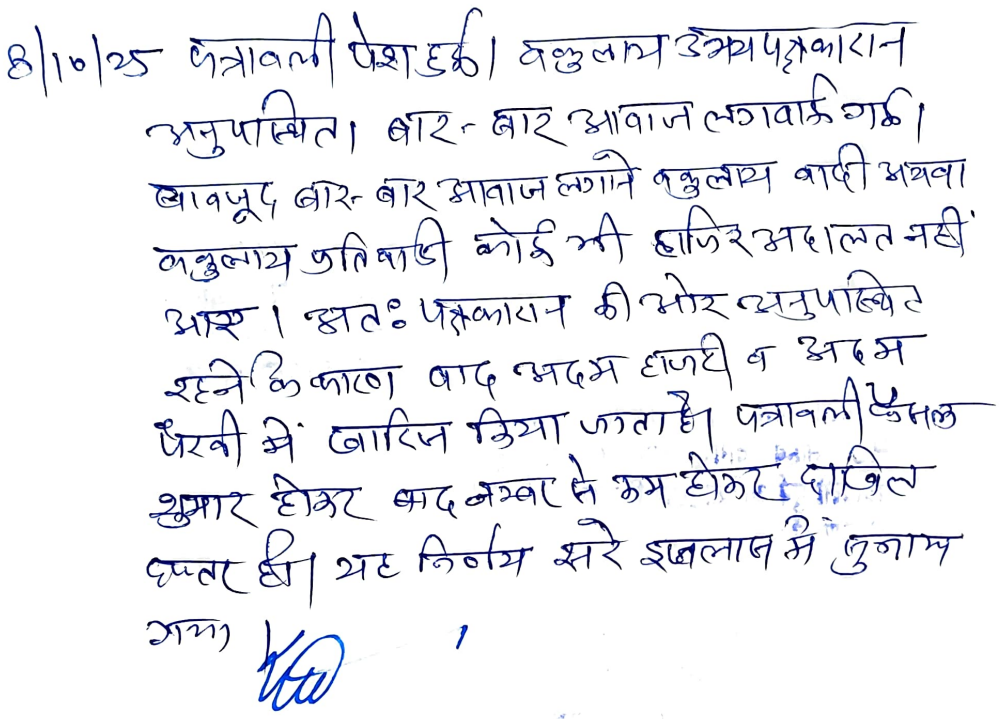 8/10/25 पत्रावली पेश हुई। वकुलाय उभयपक्षकारान
अनुपस्थित। बार-बार आवाज लगवाई गई।
बावजूद बार-बार आवाज लगाने वकुलाय वादी अथवा
वकुलाय प्रतिवादी कोई भी हाजिर अदालत नहीं
आए। अतः पक्षकारान की ओर अनुपस्थित
रहने के कारण वाद अदम हाजरी व अदम
पैरवी में खारिज किया जाता है। पत्रावली फैसल
शुमार होकर बाद नम्बर से कम होकर दाखिल
दफ्तर हो। यह निर्णय सरे इजलास में सुनाया
गया।